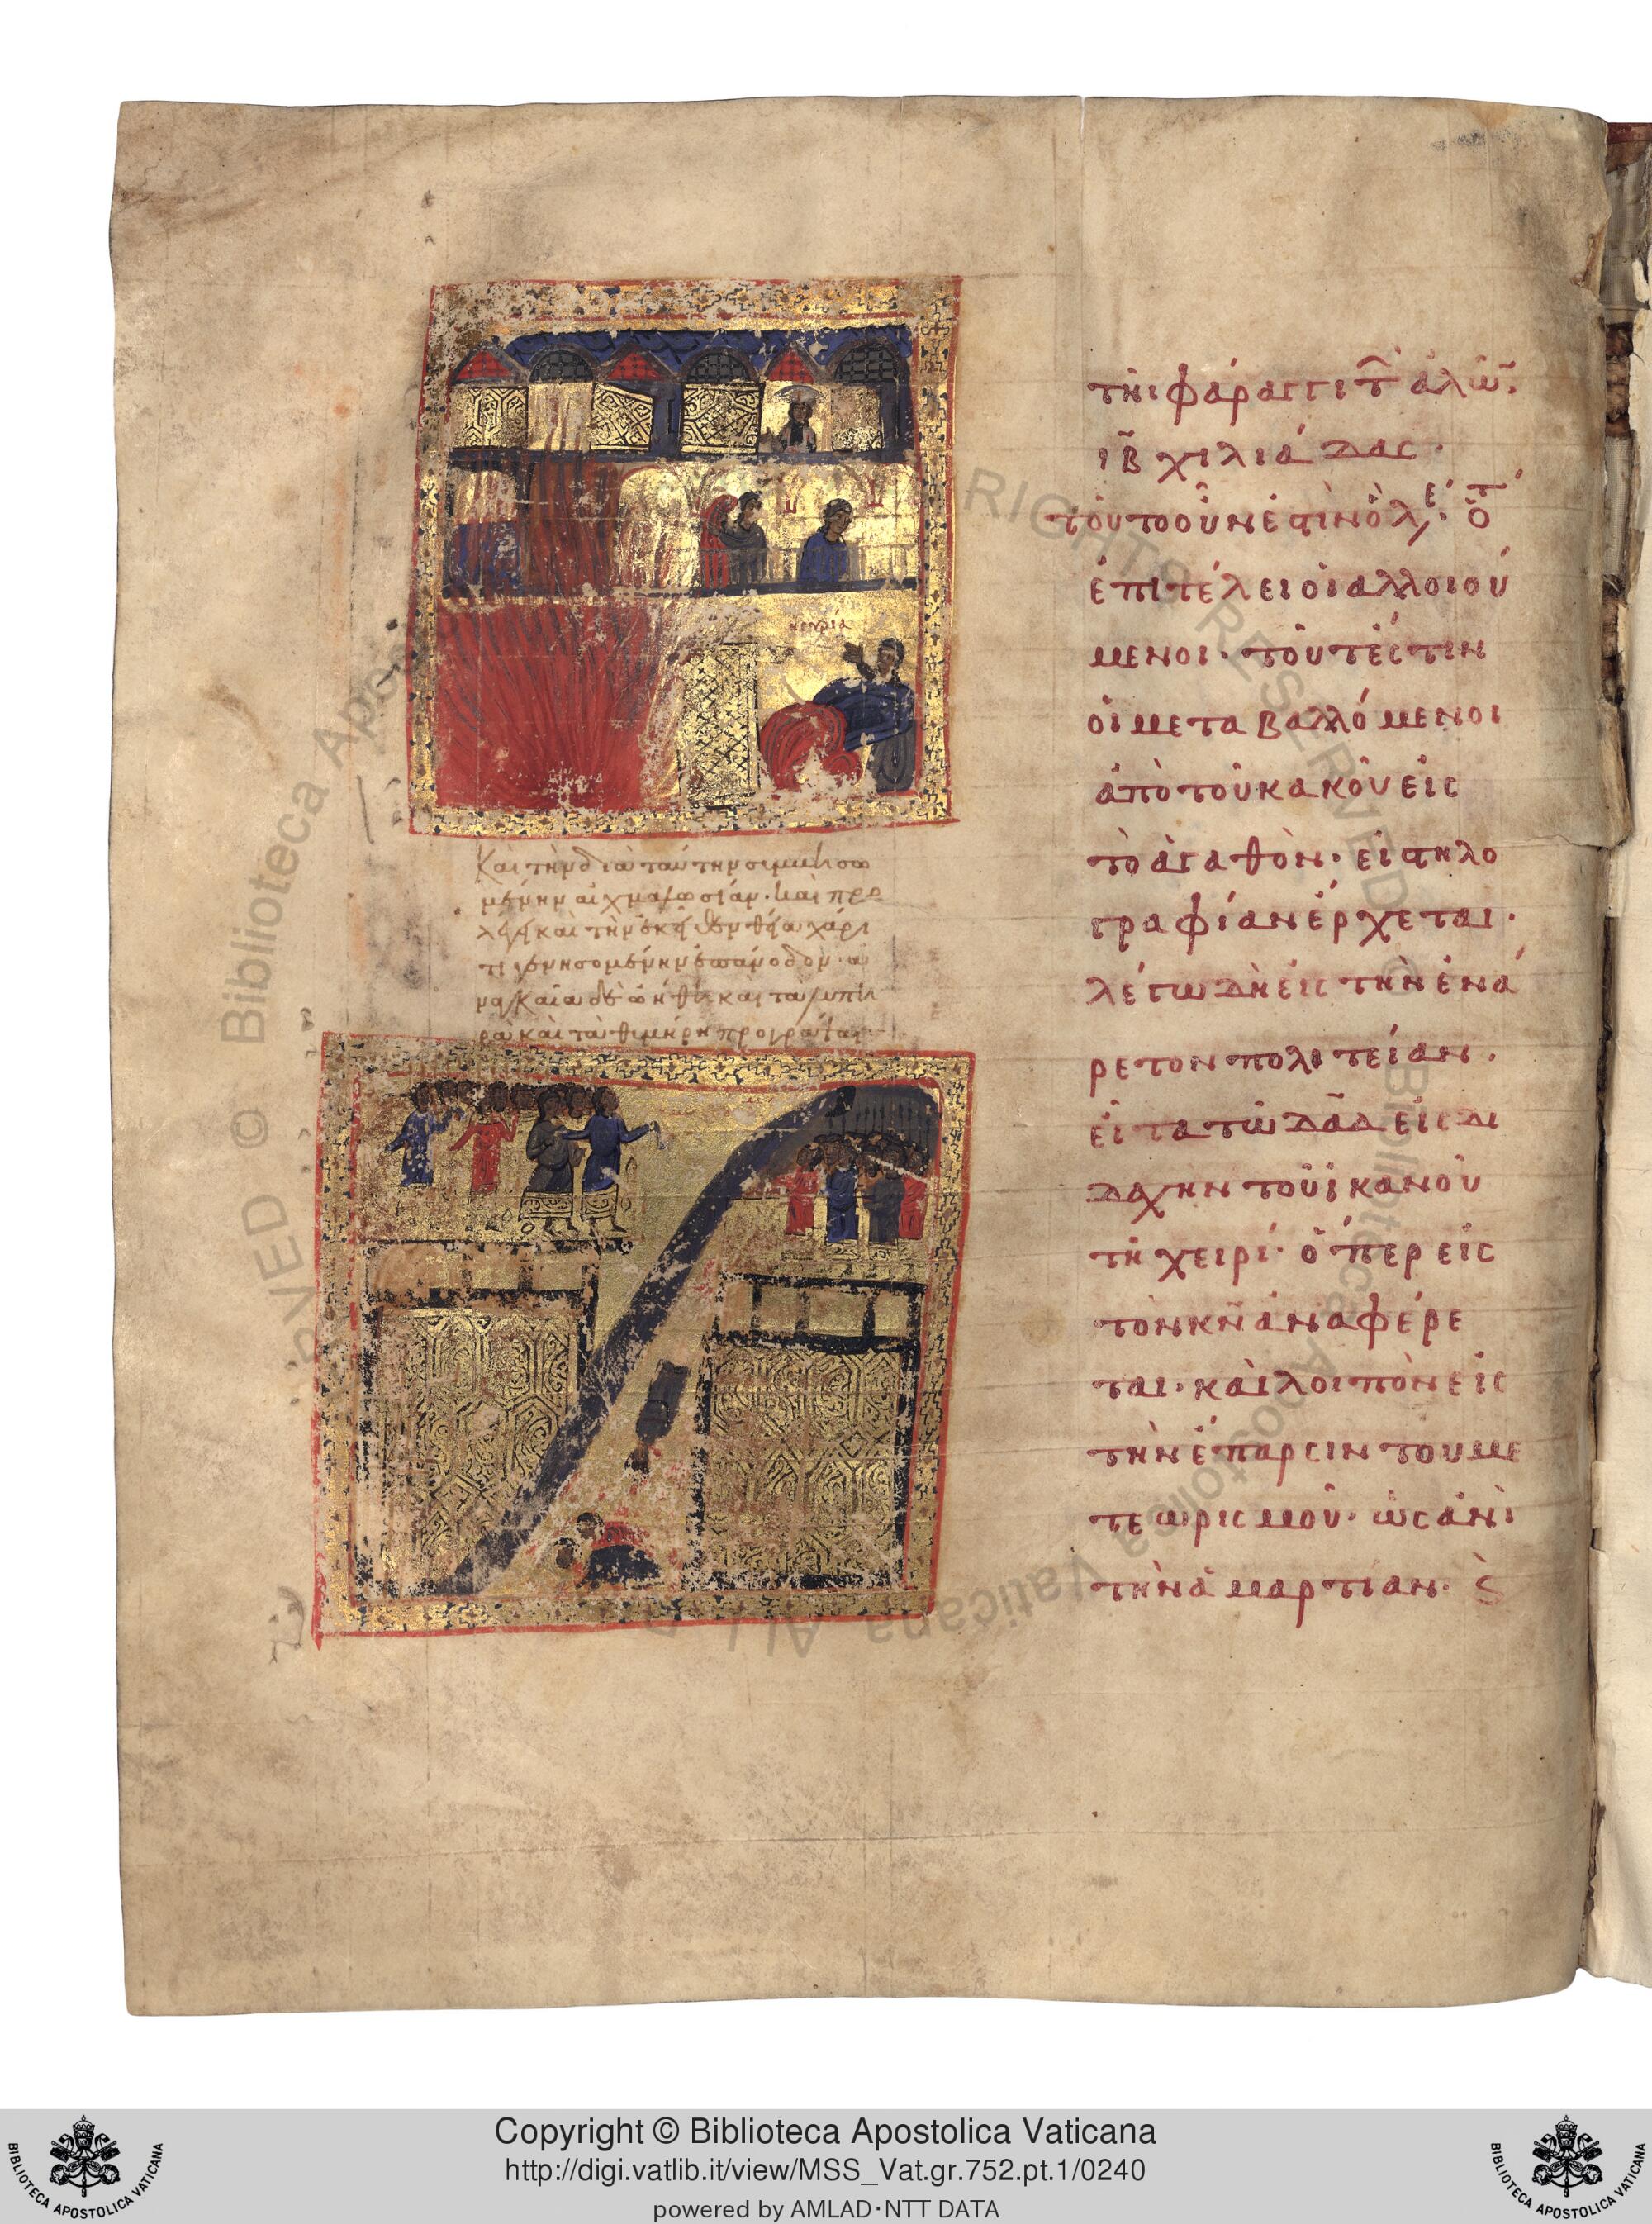 τῆι φάραγγι τ ἁλῶν.
ιβ χιλιάδας.
τοῦτο οὖν ἐστὶν ὃ λέγει. ὅτ
ἐπὶ τέλει οἱ ἀλλοιού
μενοι. τοῦτέστιν
οἱ μεταβαλλόμενοι
ἀπὸ τοῦ κακοῦ εἰς
τὸ ἀγαθόν. εἰ στηλο
γραφίαν ἔρχεται.
λέγω δὴ εἰς τὴν ἐνά
ρετον πολιτείαν.
εἶτα τῶ δαδ εἰς δι
δαχὴν τοῦ ἱκανοῦ
τῆ χειρί. ὅπερ εἰς
τὸν κν ἀναφέρε
ται. καὶ λοιπὸν εἰς
τὴν ἔπαρσιν τοῦ με
τεωρισμοῦ. ὡς ἀντὶ
τὴν ἁμαρτίαν.
Καὶ τὴν διὰ ταύτην
μένην αἰχμαλωσίαν. καὶ προ
καὶ τὴν θεία χάρι
τι γενησομένην ἐπάνοδον.
καὶ τὰ
ρα καὶ τὰ προγράψας
Copyright © Biblioteca Apostolica Vaticana
http://digi.vatlib.it/view/MSS_Vat.gr.752.pt.1/0240
powered by AMLAD·NTT DATA
BIBLIOTECA APOSTOLICA VATICANA
BIBLIOTECA APOSTOLICA VATICANA